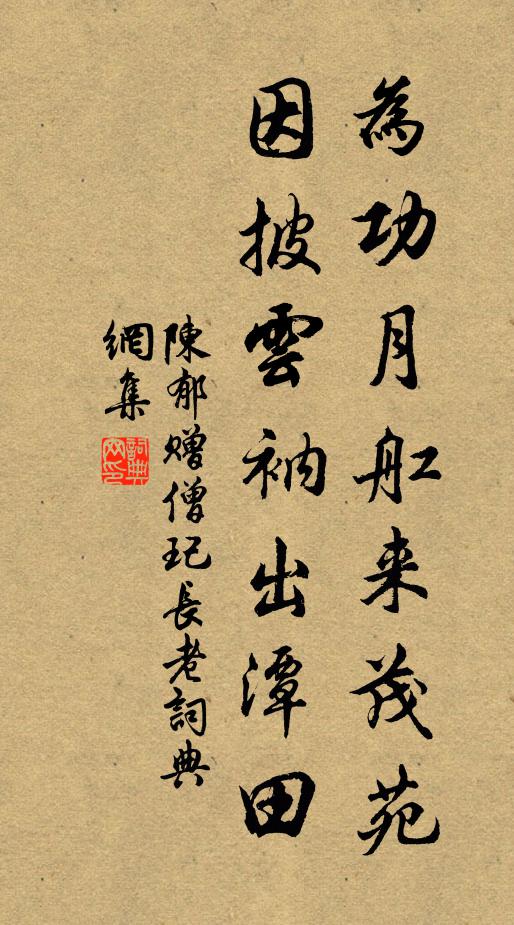 為功月舡来茂苑
因披雲衲出潭田
陳郁贈僧玘長老詞典
網集
詞典網印